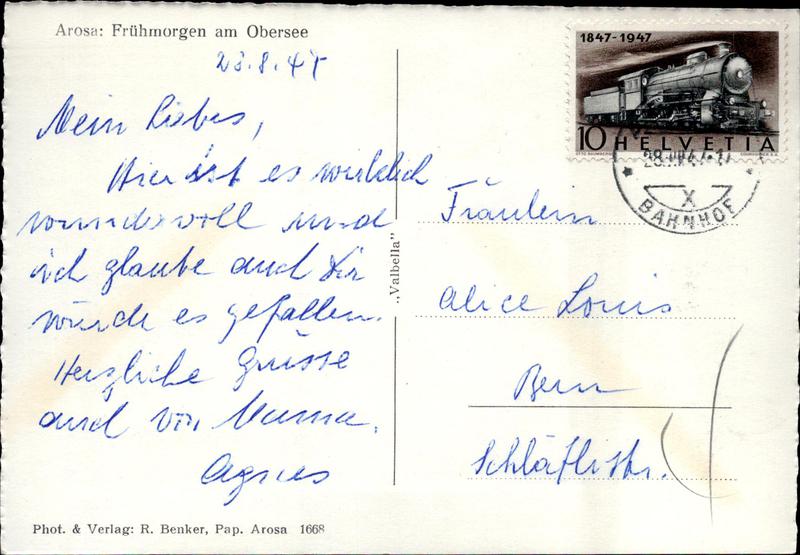 Arosa: Frühmorgen am Obersee
28.8.47
Mein Liebes,
Hier ist es wirklich
wundervoll und
ich glaube auch Dir
würde es gefallen.
Herzliche Grüsse
auch von Mama.
Agnes
Phot. & Verlag: R. Benker, Pap. Arosa 1668
„Valbella"
1847-1947
10 HELVETIA
28.VIII.47.-17
X
BAHNHOF
Fräulein
Alice Louis
Bern
Schläflistr.